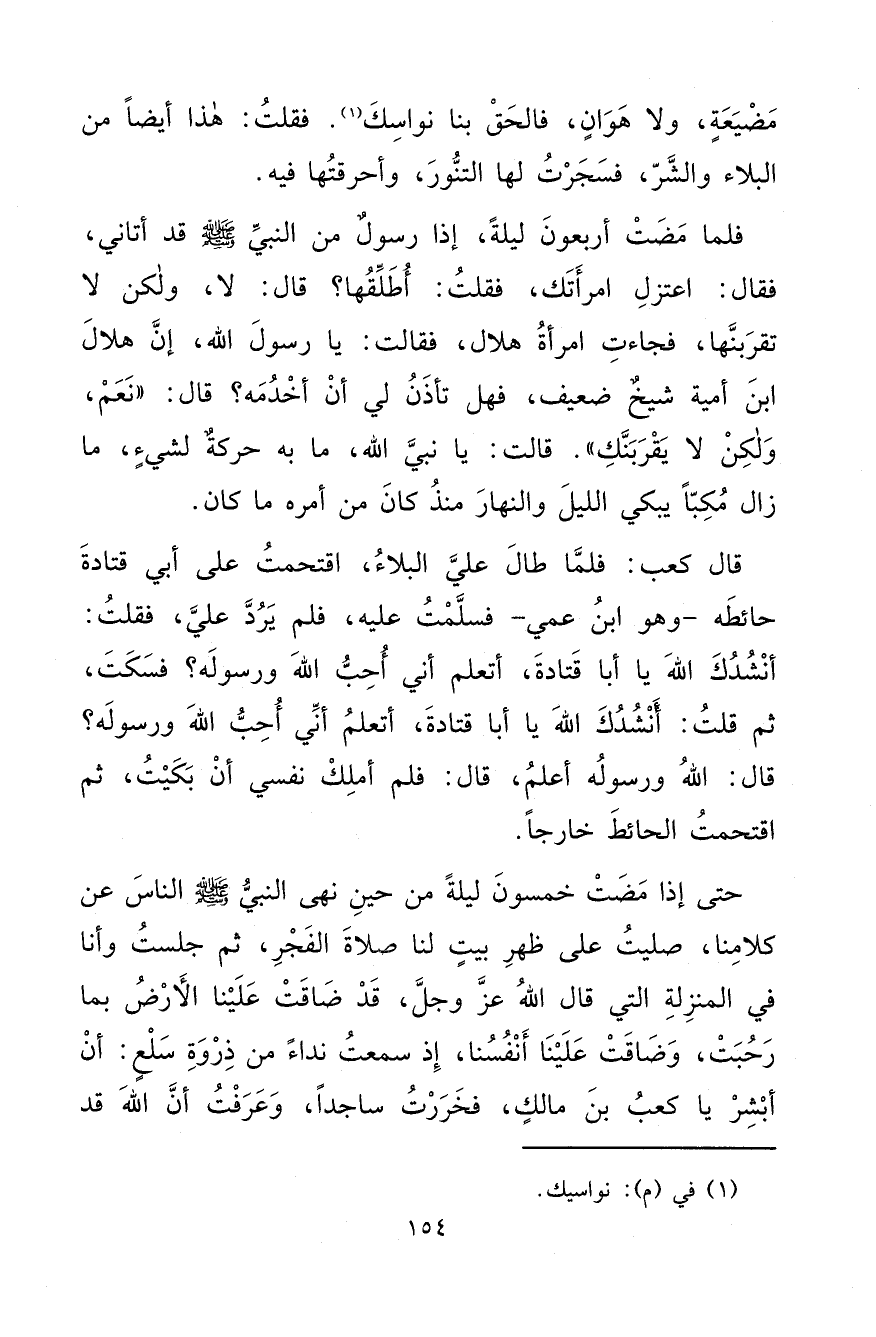 مَضْيَعَةٍ، ولا هَوَانٍ، فالحَقْ بنا نواسِكَ(١). فقلتُ: هٰذا أيضاً من
البلاء والشَّرّ، فسَجَرْتُ لها التنُّورَ، وأحرقتُها فيه.
فلما مَضَتْ أربعونَ ليلةً، إذا رسولٌ من النبيِّ ﷺ قد أتاني،
فقال: اعتزلِ امرأتَك، فقلتُ: أُطَلِّقُها؟ قال: لا، ولٰكن لا
تقرَبنَّها، فجاءتِ امرأةُ هلال، فقالت: يا رسولَ الله، إنَّ هلالَ
ابنَ أمية شيخٌ ضعيف، فهل تأذَنُ لي أنْ أخْدُمَه؟ قال: «نَعَمْ،
وَلٰكِنْ لا يَقْرَبَنَّكِ». قالت: يا نبيَّ الله، ما به حركةٌ لشيءٍ، ما
زال مُكِبّاً يبكي الليلَ والنهارَ منذُ كانَ من أمره ما كان.
قال كعب: فلمَّا طالَ عليَّ البلاءُ، اقتحمتُ على أبي قتادةَ
حائطَه -وهو ابنُ عمي- فسلَّمْتُ عليه، فلم يَرُدَّ عليَّ، فقلتُ:
أنْشُدُكَ اللهَ يا أبا قَتادةَ، أتعلم أني أُحِبُّ اللهَ ورسولَه؟ فسَكَتَ،
ثم قلتُ: أَنْشُدُكَ اللهَ يا أبا قتادةَ، أتعلمُ أنِّي أُحِبُّ اللهَ ورسولَه؟
قال: اللهُ ورسولُه أعلمُ، قال: فلم أملِكْ نفسي أنْ بَكَيْتُ، ثم
اقتحمتُ الحائطَ خارجاً.
حتى إذا مَضَتْ خمسونَ ليلةً من حينِ نهى النبيُّ ﷺ الناسَ عن
كلامِنا، صليتُ على ظهرِ بيتٍ لنا صلاةَ الفَجْرِ، ثم جلستُ وأنا
في المنزِلةِ التي قال اللهُ عزَّ وجلَّ، قَدْ ضَاقَتْ عَلَيْنا الأَرْضُ بما
رَحُبَتْ، وَضَاقَتْ عَلَيْنَا أَنْفُسُنا، إذ سمعتُ نداءً من ذِرْوَةِ سَلْعٍ: أنْ
أبْشِرْ يا كعبُ بنَ مالكٍ، فخَرَرْتُ ساجداً، وَعَرَفْتُ أنَّ اللهَ قد
(١) في (م): نواسيك.
١٥٤